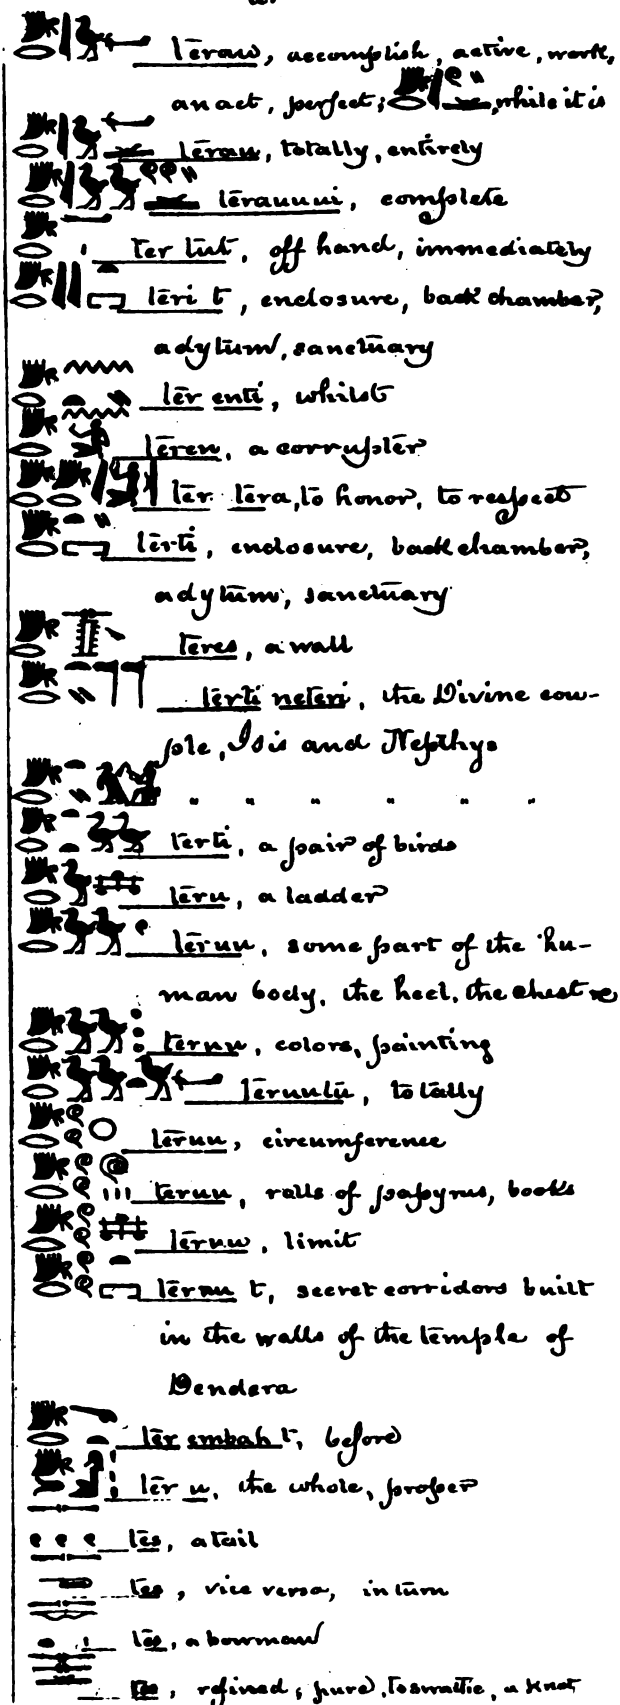 tēraw, accomplish, active, work,
an act, perfect; while it is
tērau, totally, entirely
tērauuui, complete
ter tut, off hand, immediately
tēri t, enclosure, back chamber,
adytum, sanctuary
tēr enti, whilst
tēren, a corrupter
tēr tēra, to honor, to respect
tērti, enclosure, back chamber,
adytum, sanctuary
teres, a wall
tērti neteri, the Divine cou-
ple, Isis and Nepthys
" " " " " "
terti, a pair of birds
tēru, a ladder
tēruu, some part of the hu-
man body, the heel, the chest
teruu, colors, painting
tēruutu, totally
tēruu, circumference
teruu, rolls of papyrus, books
tēruu, limit
tēruu t, secret corridors built
in the walls of the temple of
Dendera
tēr embah t, before
tēr u, the whole, proper
tēs, a tail
tes, vice versa, in turn
tēs, a bowman
tes, refined, pure, a knot